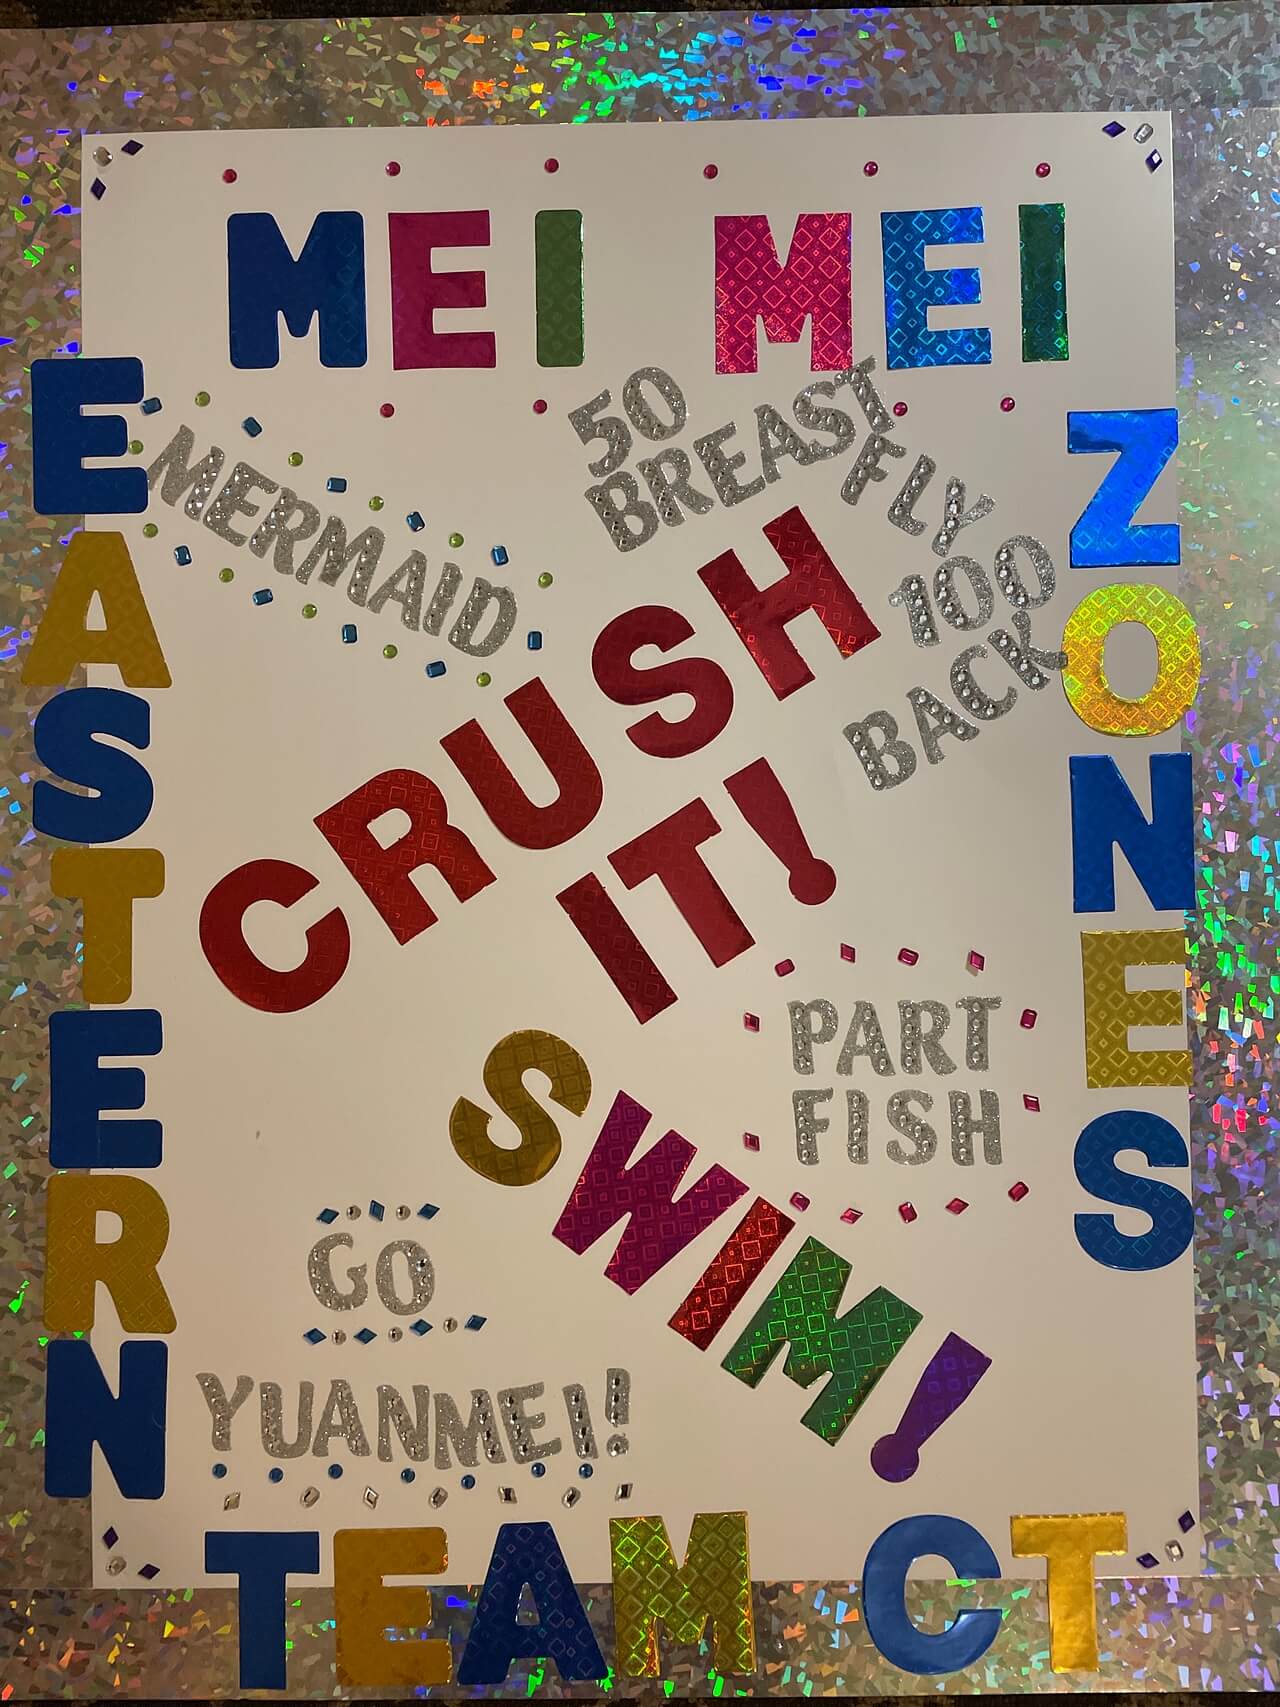 MEI MEI
EASTERN
ZONES
MERMAID
50
BREAST
FLY
100
BACK
CRUSH
IT!
PART
FISH
SWIM!
GO
YUANMEI!
TEAM CT